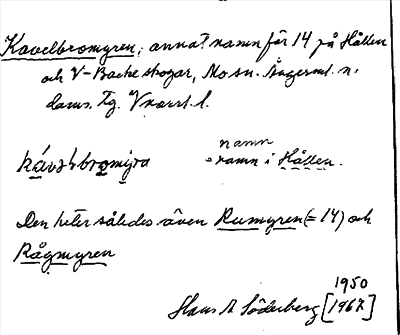 Kavelbromyren: annat namn för 14 på Hållen
och V-Backe skogar, Mo sn. Ångerml. n.
doms. Tg. Vnorrl. l.
kávəlbromýra
namn
= namn i Hållen.
Den heter således även Rumyren (= 14) och
Rågmyren
1950
Hans A Söderberg [1967]